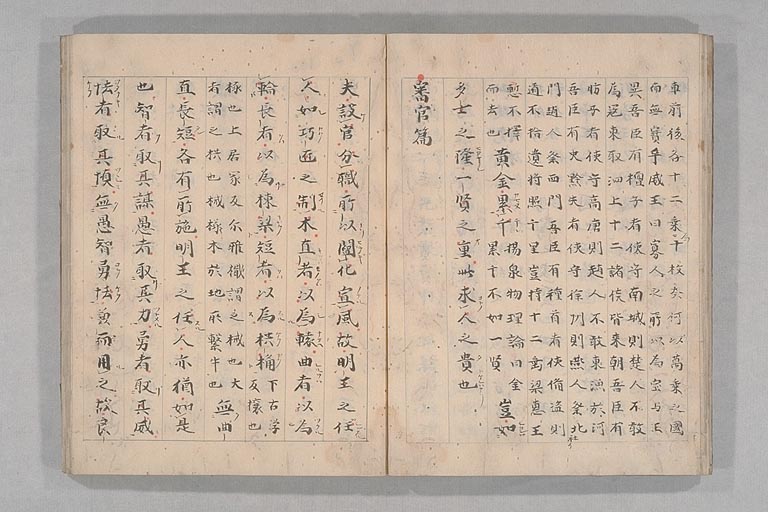 車前後各十二乘者十枚奈何以萬乘之國
而無寶乎威王曰寡人之所以為寶与王
異吾臣有檀子者使守南城則楚人不敢
為寇東取泗上十二諸侯皆来朝吾臣有
盼子者使守高唐則趙人不敢東漁於河
吾臣有黔夫者使守徐州則燕人祭北
門趙人祭西門吾臣有種首者使備盜則
道不拾遺将照千里豈特十二乘梁惠王
慙不懌
而去也
黄金累千
楊泉物理論曰金
累千不如一賢
豈如
多士之隆一賢之重此求人之貴也
審官篇
夫設官分職所以闡化宣風故明主之任
人如巧匠之制木直者以為轅曲者以為
輪長者以為棟梁短者以為栱桷
無曲
直長短各有所施明王之任人亦猶如是
也智者取其謀愚者取其力勇者取其威
怯者取其慎無愚智勇怯兼而用之故良